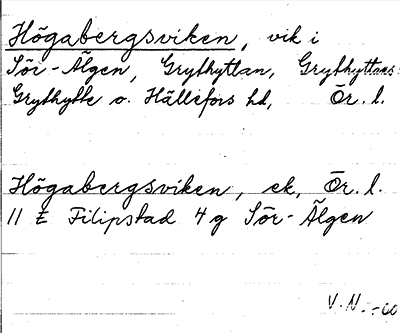 Högabergsviken, vik i
Sör-Älgen, Grythyttan, Grythyttans-
Grythytte o. Hällefors hd, Ör. l.
Högabergsviken, ek, Ör. l.
11 E Filipstad 4 g Sör-Älgen
V. N. -60